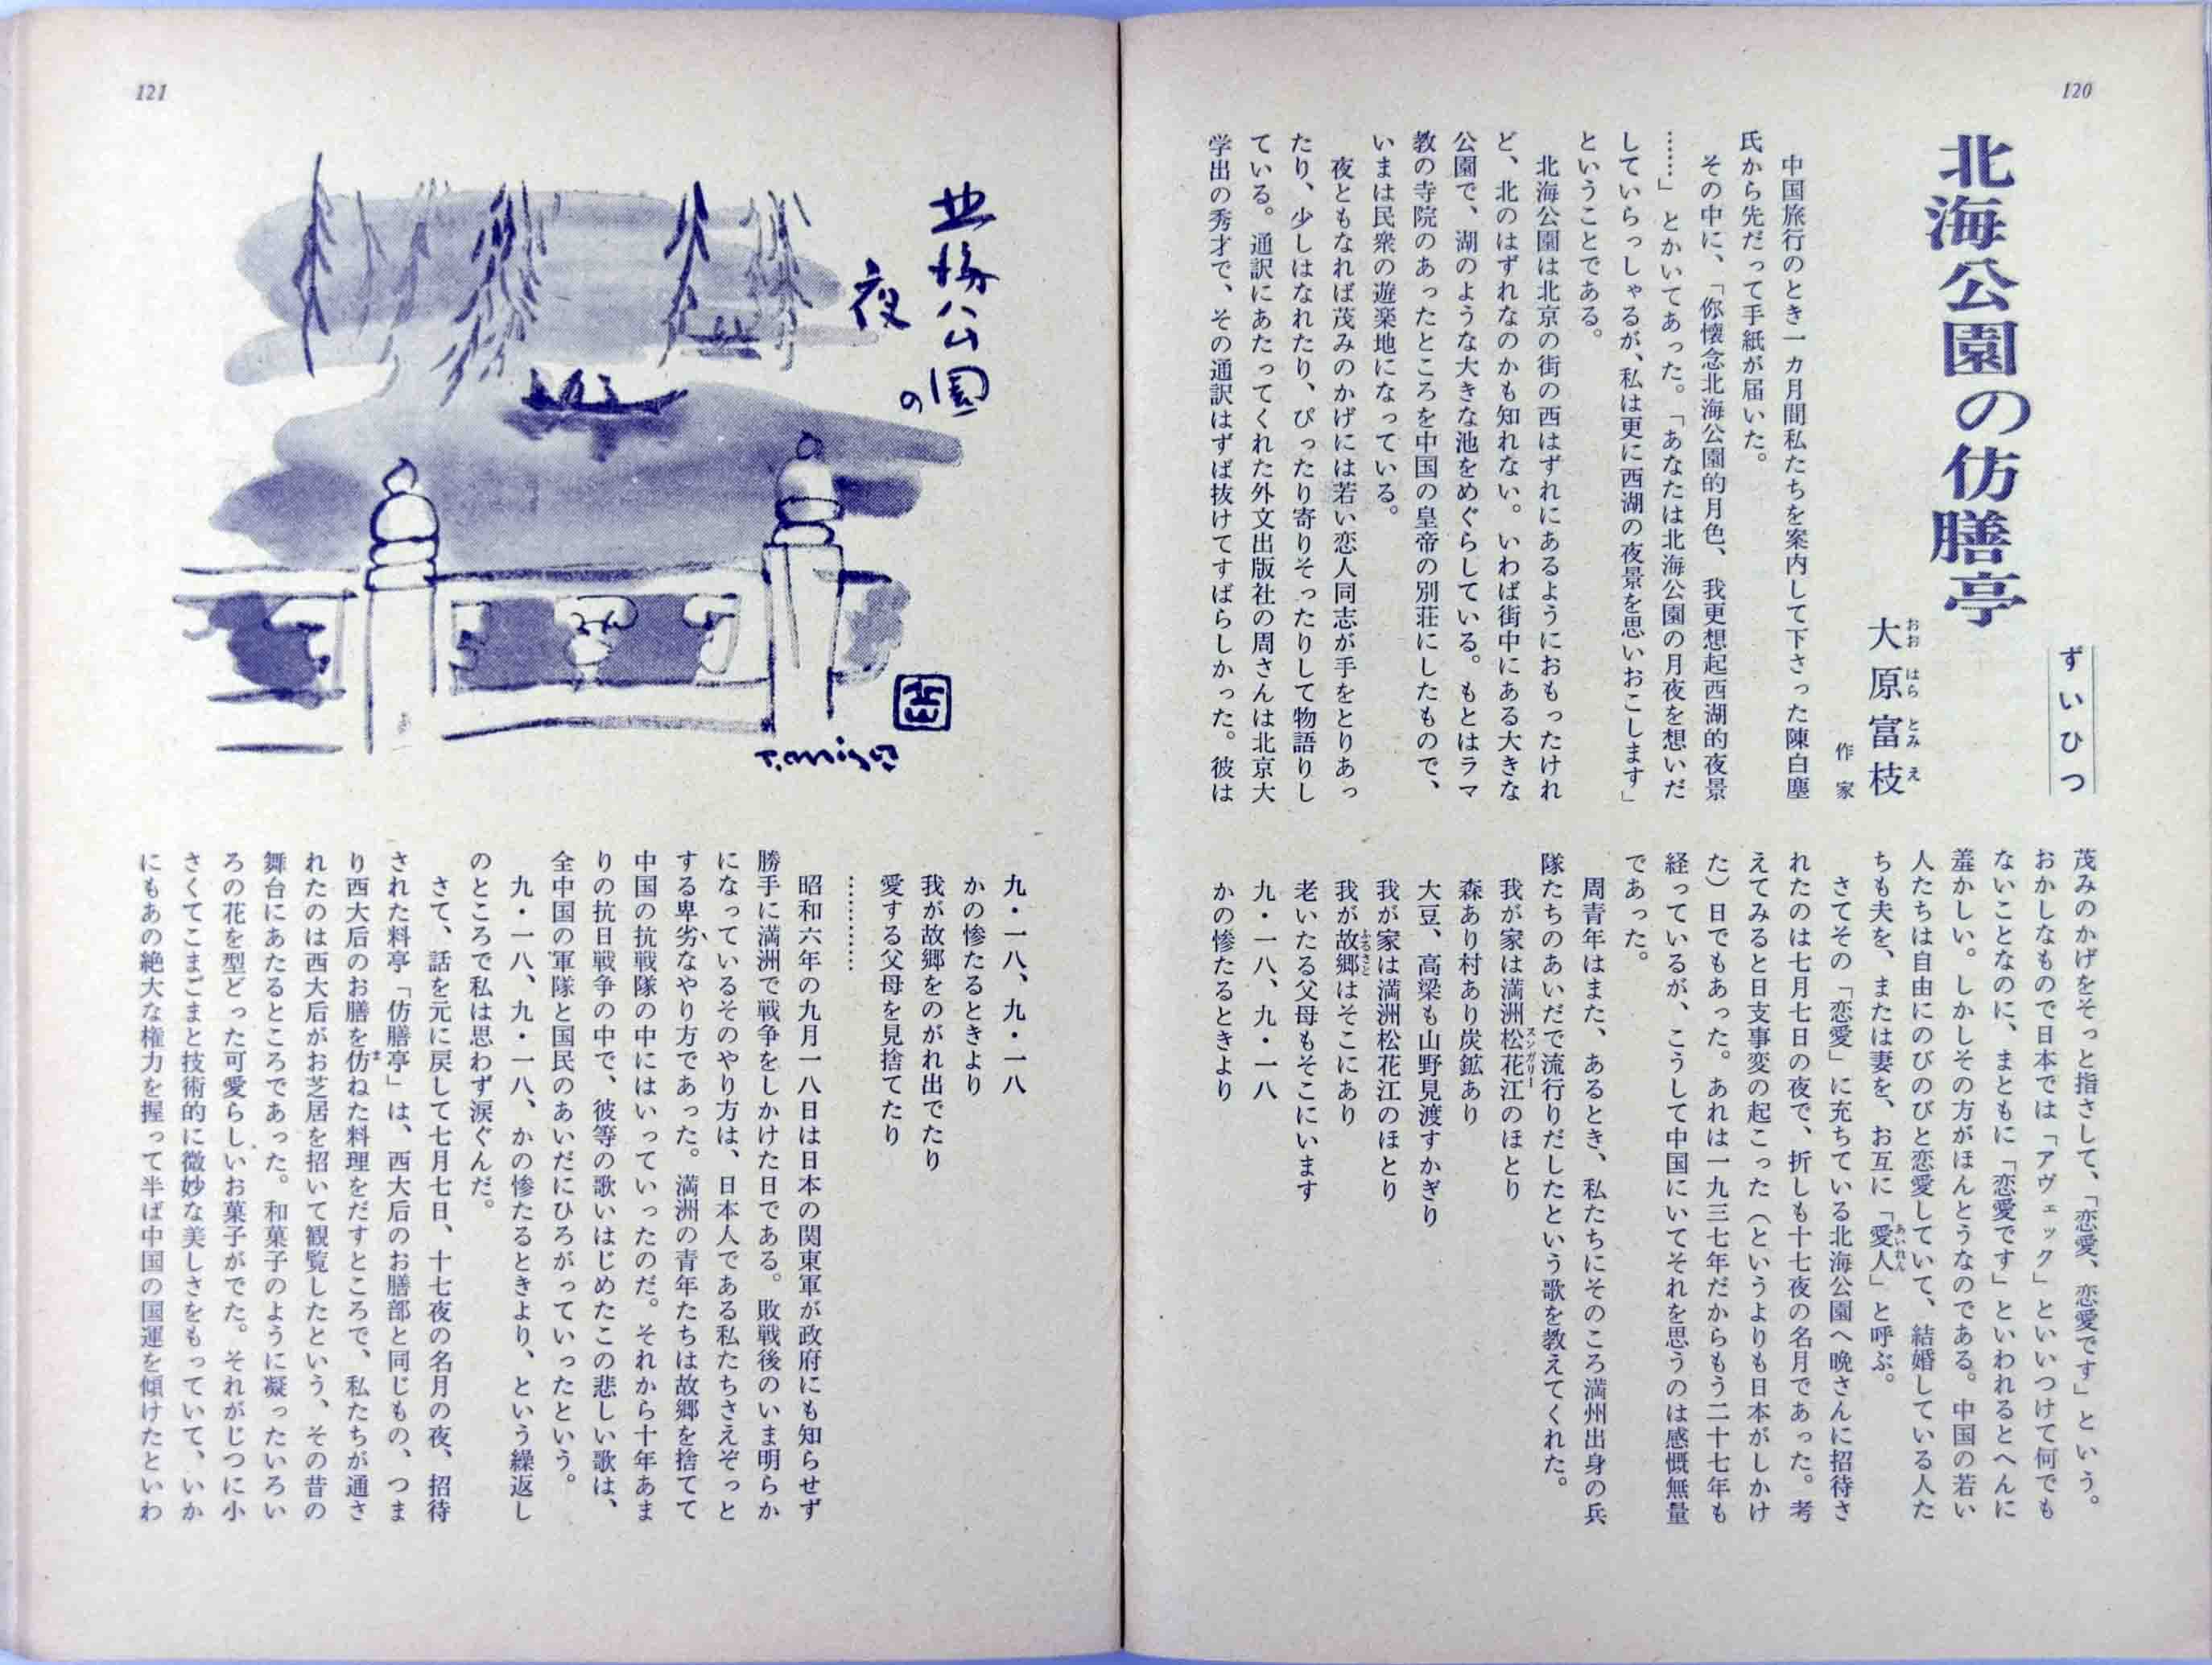 120
ずいひつ
北海公園の仿膳亭
大原富枝
おおはらとみえ
作家
中国旅行のとき一カ月間私たちを案内して下さった陳白塵
氏から先だって手紙が届いた。
その中に、「你懐念北海公園的月色、我更想起西湖的夜景
……」とかいてあった。「あなたは北海公園の月夜を想いだ
していらっしゃるが、私は更に西湖の夜景を思いおこします」
ということである。
北海公園は北京の街の西はずれにあるようにおもったけれ
ど、北のはずれなのかも知れない。いわば街中にある大きな
公園で、湖のような大きな池をめぐらしている。もとはラマ
教の寺院のあったところを中国の皇帝の別荘にしたもので、
いまは民衆の遊楽地になっている。
夜ともなれば茂みのかげには若い恋人同志が手をとりあっ
たり、少しはなれたり、ぴったり寄りそったりして物語りし
ている。通訳にあたってくれた外文出版社の周さんは北京大
学出の秀才で、その通訳はずば抜けてすばらしかった。彼は
茂みのかげをそっと指さして、「恋愛、恋愛です」という。
おかしなもので日本では「アヴェック」といいつけて何でも
ないことなのに、まともに「恋愛です」といわれるとへんに
羞かしい。しかしその方がほんとうなのである。中国の若い
人たちは自由にのびのびと恋愛していて、結婚している人た
ちも夫を、または妻を、お互に「愛人」と呼ぶ。
あいれん
さてその「恋愛」に充ちている北海公園へ晩さんに招待さ
れたのは七月七日の夜で、折しも十七夜の名月であった。考
えてみると日支事変の起こった（というよりも日本がしかけ
た）日でもあった。あれは一九三七年だからもう二十七年も
経っているが、こうして中国にいてそれを思うのは感慨無量
であった。
周青年はまた、あるとき、私たちにそのころ満州出身の兵
隊たちのあいだで流行りだしたという歌を教えてくれた。
我が家は満洲松花江のほとり
スンガリー
森あり村あり炭鉱あり
大豆、高梁も山野見渡すかぎり
我が家は満洲松花江のほとり
我が故郷はそこにあり
ふるさと
老いたる父母もそこにいます
九・一八、九・一八
かの惨たるときより
121
北海公園の
夜
T.omigo
九・一八、九・一八
かの惨たるときより
我が故郷をのがれ出でたり
愛する父母を見捨てたり
…………
昭和六年の九月一八日は日本の関東軍が政府にも知らせず
勝手に満洲で戦争をしかけた日である。敗戦後のいま明らか
になっているそのやり方は、日本人である私たちさえぞっと
する卑劣なやり方であった。満洲の青年たちは故郷を捨てて
中国の抗戦隊の中にはいっていったのだ。それから十年あま
りの抗日戦争の中で、彼等の歌いはじめたこの悲しい歌は、
全中国の軍隊と国民のあいだにひろがっていったという。
九・一八、九・一八、かの惨たるときより、という繰返し
のところで私は思わず涙ぐんだ。
さて、話を元に戻して七月七日、十七夜の名月の夜、招待
された料亭「仿膳亭」は、西大后のお膳部と同じもの、つま
り西大后のお膳を仿ねた料理をだすところで、私たちが通さ
ま
れたのは西大后がお芝居を招いて観覧したという、その昔の
舞台にあたるところであった。和菓子のように凝ったいろい
ろの花を型どった可愛らしいお菓子がでた。それがじつに小
さくてこまごまと技術的に微妙な美しさをもっていて、いか
にもあの絶大な権力を握って半ば中国の国運を傾けたといわ